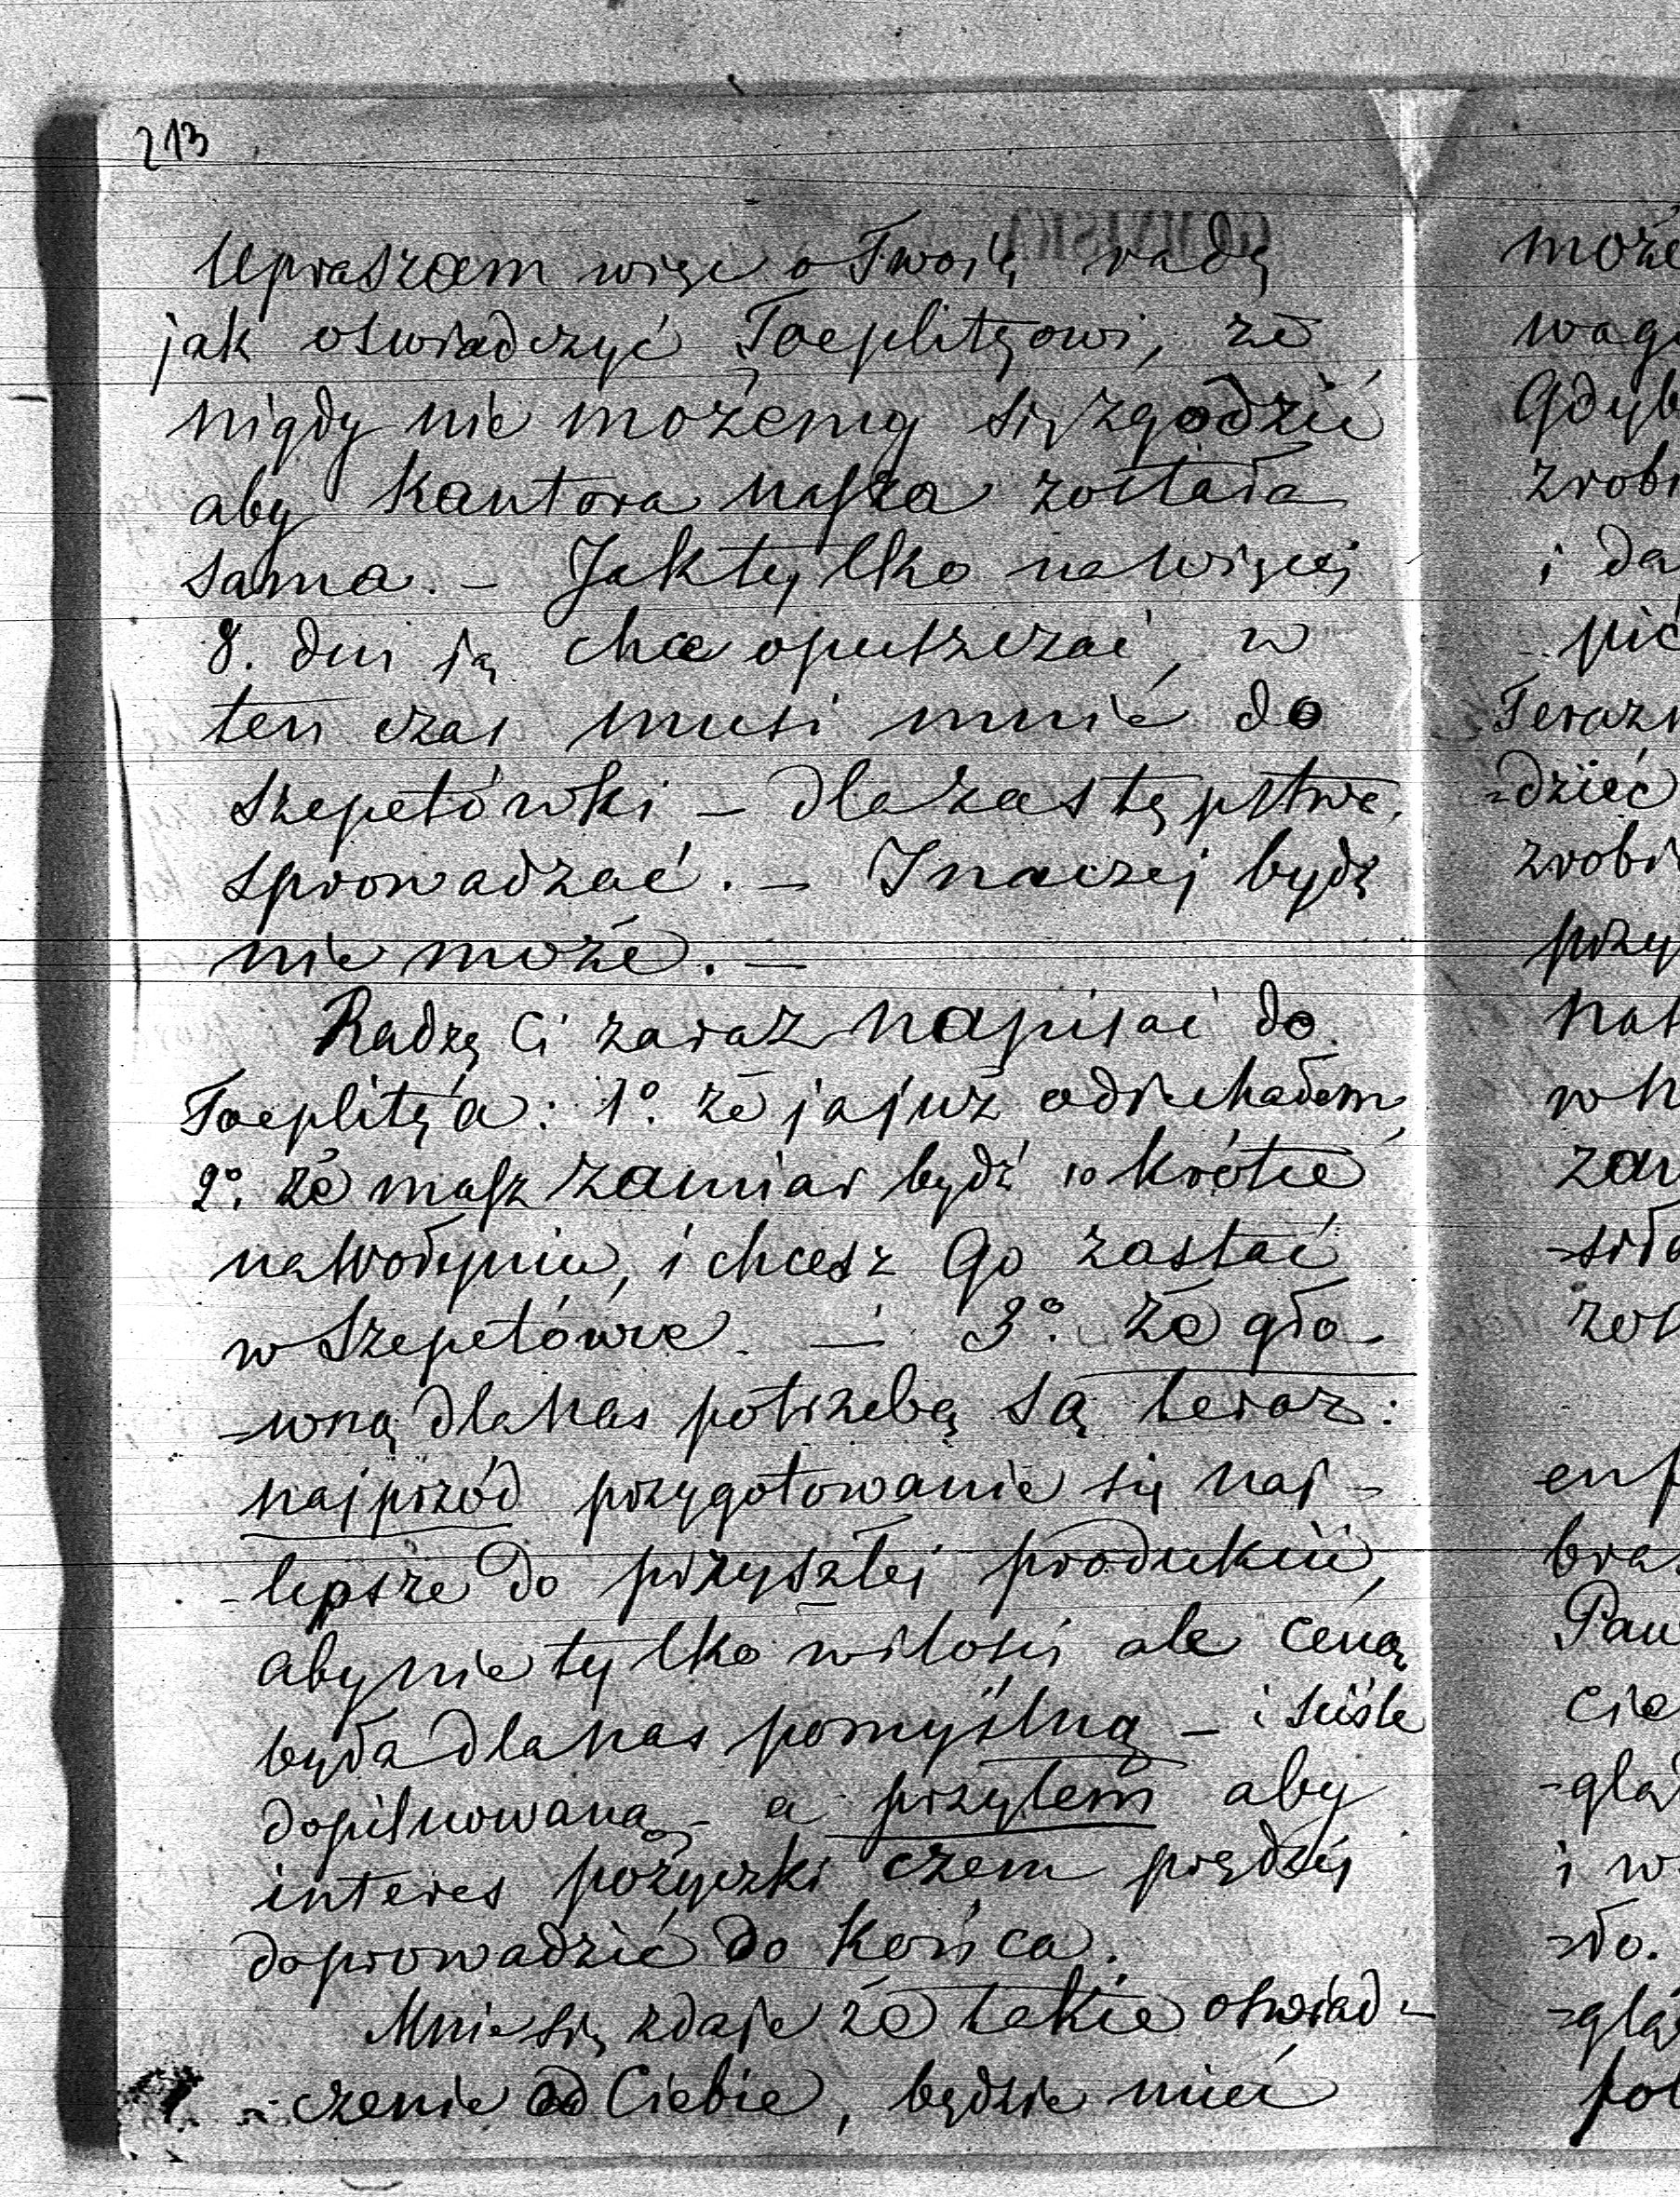 213
Upraszam więc o Twoię radę
jak oświadczyć Toeplitzowi, że
nigdy nie możemy się zgodzić
aby kantora nasza została
sama. – Jak tylko na więcej
8. dni ją chce opuszczać, w
ten czas musi mnie do
Szepetówki – dla zastępstwa
sprowadzać. – Inaczej bydź
nie może. –
Radzę Ci zaraz napisać do
Toeplitza: 1º. że ja już odjechałem
2º. że masz zamiar bydź w krótce
na Wołyniu, i chcesz Go zastać
w Szepetówce. – 3º. Że głó-
-wną dla nas potrzebą są teraz:
najprzód przygotowanie się naj-
-lepsze do przyszłej produkcii,
aby nie tylko w ilości ale ceną
była dla nas pomyślną – i ściśle
dopilnowaną – a przytem aby
interes pożyczki czem prędzej
doprowadzić do końca.
Mnie się zdaje że takie oświad-
-czenie od Ciebie, będzie mieć
może
wag
Gdyb
zrobi
i da
Teraz
-dzieć
zrobi
przy
Pan
cie
-gla
i w
-ło.